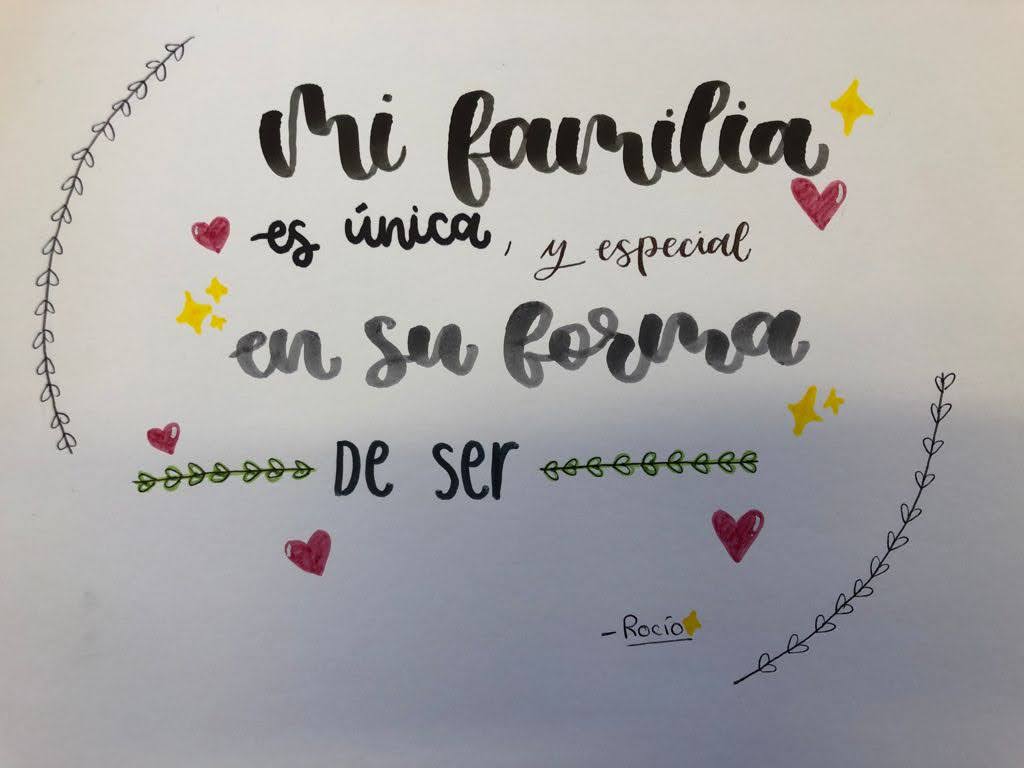 Mi familia
es única, y especial
en su forma
DE SER
- Rocío